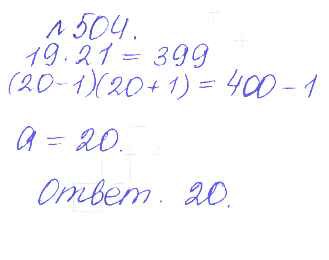 № 504.
19 · 21 = 399
(20-1)(20+1) = 400-1
a = 20.
Ответ. 20.